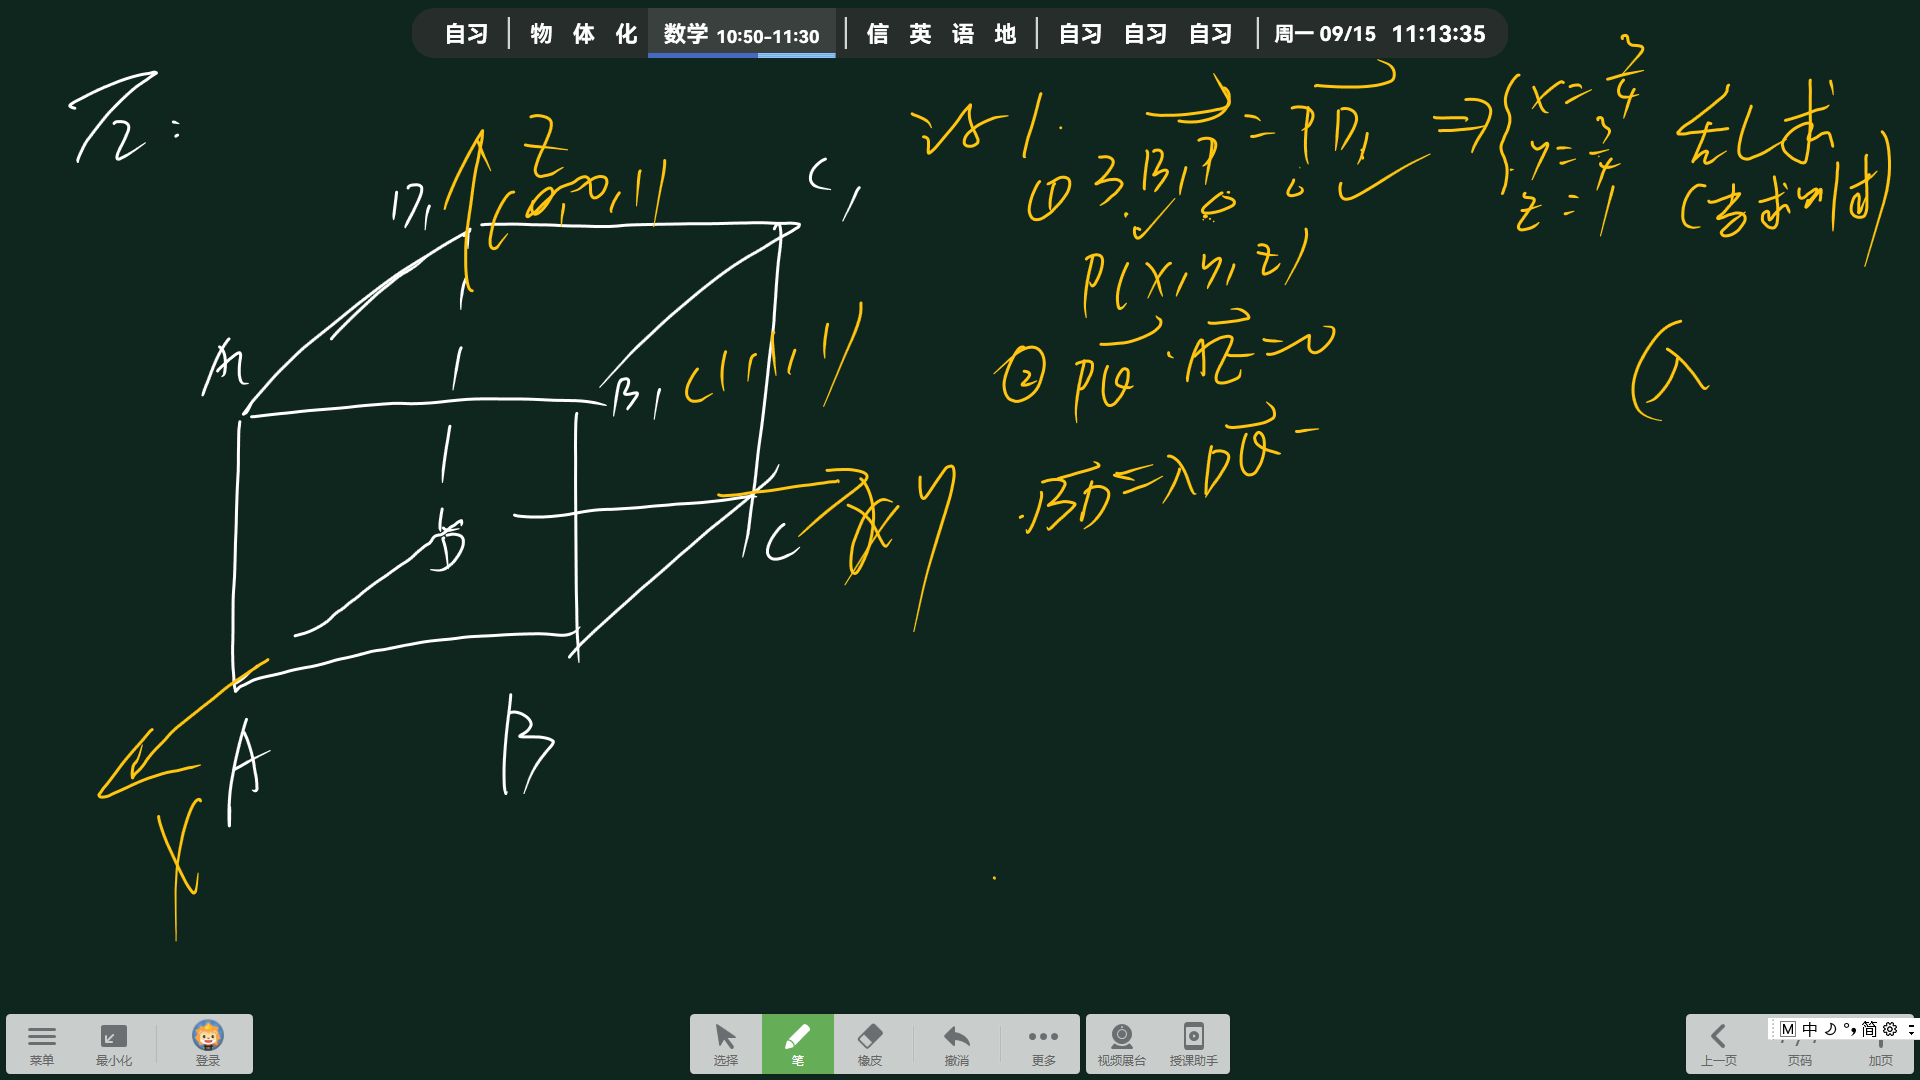 自习 | 物 体 化 数学 10:50-11:30 | 信 英 语 地 | 自习 自习 自习 | 周一 09/15 11:13:35
T2:
Z
D₁ (0,0,1)
C₁
B₁ (1,1,1)
D
C
y
A
B
x
设 1.
① 3B₁P = PD₁ ⇒ { x = 3/4
y = 3/4
z = 1
P(x, y, z)
② PQ · AE = 0
BD = λDQ =
(λ
菜单 最小化 登录 选择 笔 橡皮 撤消 更多 视频展台 授课助手 上一页 页码 加页
M 中 简